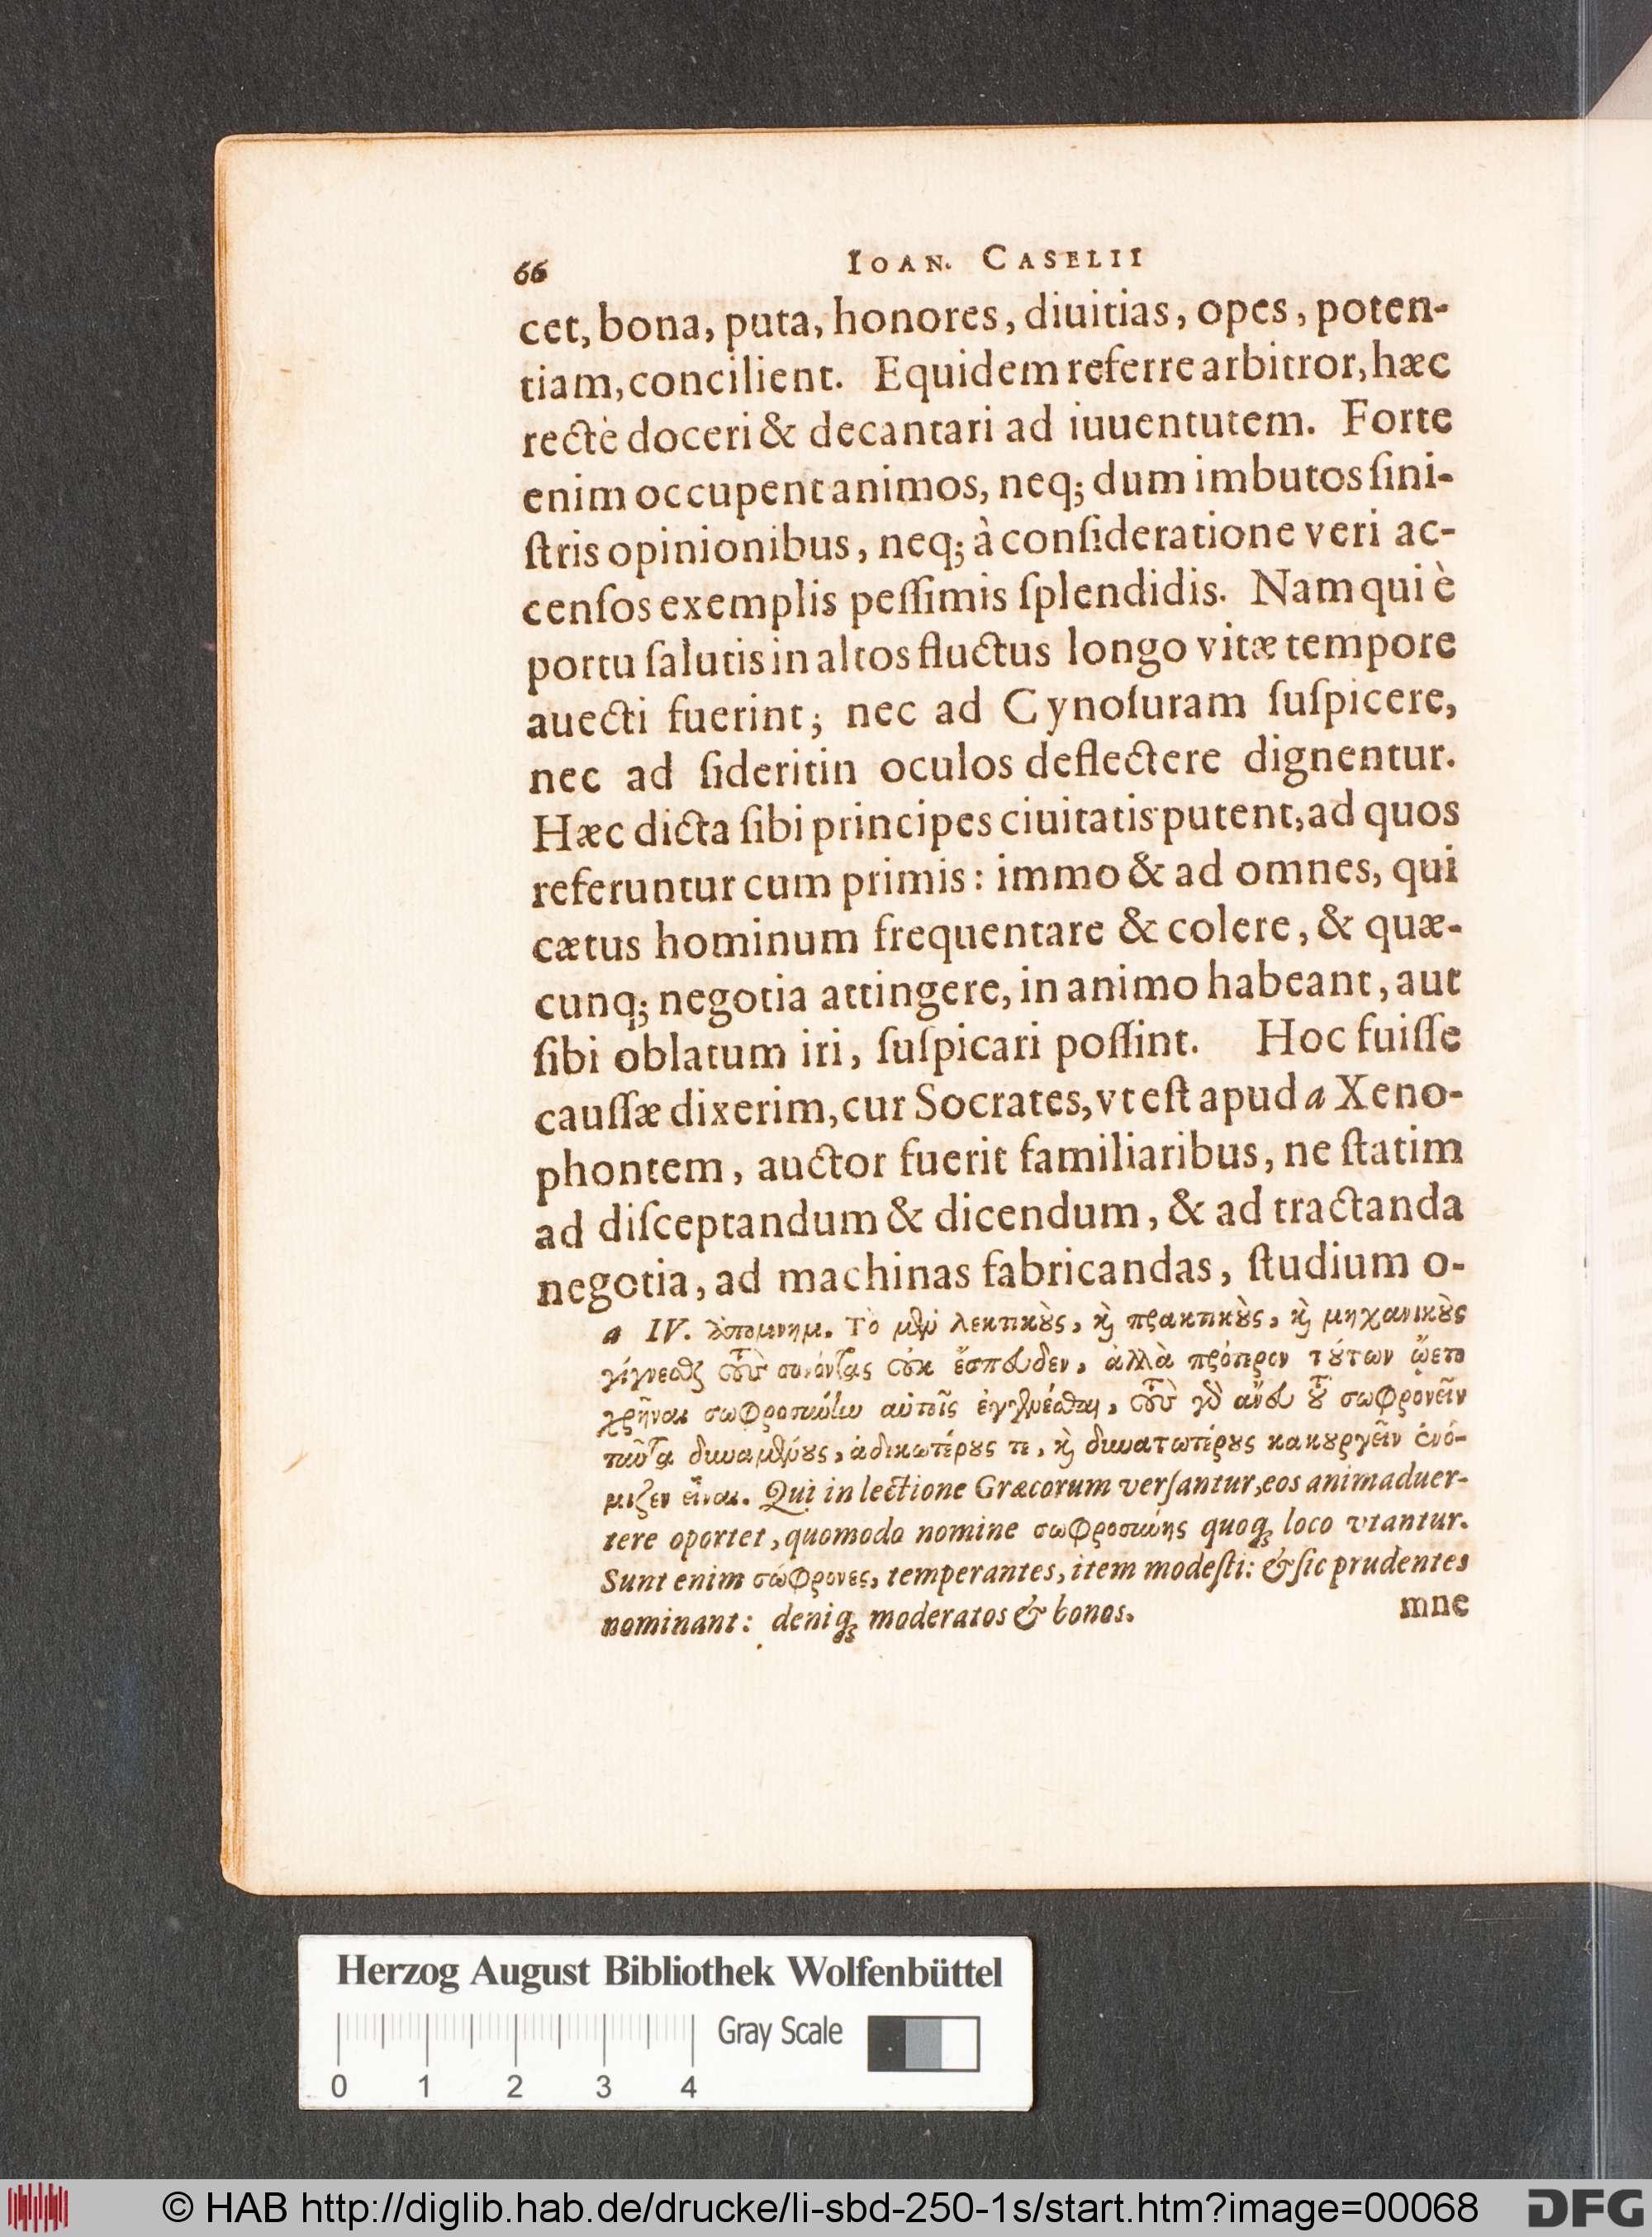 66
IOAN. CASELII
cet, bona, puta, honores, diuitias, opes, poten-
tiam, concilient. Equidem referre arbitror, hæc
rectè doceri & decantari ad iuuentutem. Forte
enim occupent animos, neq; dum imbutos ſini-
ſtris opinionibus, neq; à conſideratione veri ac-
cenſos exemplis peſſimis ſplendidis. Nam qui è
portu ſalutis in altos fluctus longo vitæ tempore
auecti fuerint; nec ad Cynoſuram ſuſpicere,
nec ad ſideritin oculos deflectere dignentur.
Hæc dicta ſibi principes ciuitatis putent, ad quos
referuntur cum primis: immo & ad omnes, qui
cætus hominum frequentare & colere, & quæ-
cunq; negotia attingere, in animo habeant, aut
ſibi oblatum iri, ſuſpicari poſſint. Hoc fuiſſe
cauſſæ dixerim, cur Socrates, vt eſt apud a Xeno-
phontem, auctor fuerit familiaribus, ne ſtatim
ad diſceptandum & dicendum, & ad tractanda
negotia, ad machinas fabricandas, ſtudium o-
a IV. ἀπομνημ. Τὸ μὲν λεκτικοὺς, καὶ πρακτικοὺς, καὶ μηχανικοὺς
γίγνεσθαι τοὺς συνόντας οὐκ ἔσπευδεν, ἀλλὰ πρότερον τούτων ᾤετο
χρῆναι σωφροσύνην αὐτοῖς ἐγγενέσθαι, τοὺς γὰρ ἄνευ τοῦ σωφρονεῖν
ταῦτα δυναμένους, ἀδικωτέρους τε, καὶ δυνατωτέρους κακουργεῖν ἐνό-
μιζεν εἶναι. Qui in lectione Græcorum verſantur, eos animaduer-
tere oportet, quomodo nomine σωφροσύνης quoq; loco vtantur.
Sunt enim σώφρονες, temperantes, item modeſti: & ſic prudentes
nominant: deniq; moderatos & bonos.
mne
Herzog August Bibliothek Wolfenbüttel
Gray Scale
0 1 2 3 4
© HAB http://diglib.hab.de/drucke/li-sbd-250-1s/start.htm?image=00068
DFG